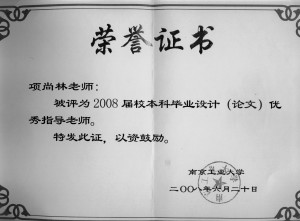 荣誉证书
项尚林老师：
被评为2008届校本科毕业设计（论文）优
秀指导老师。
特发此证，以资鼓励。
南京工业大学
二〇〇八年六月二十日